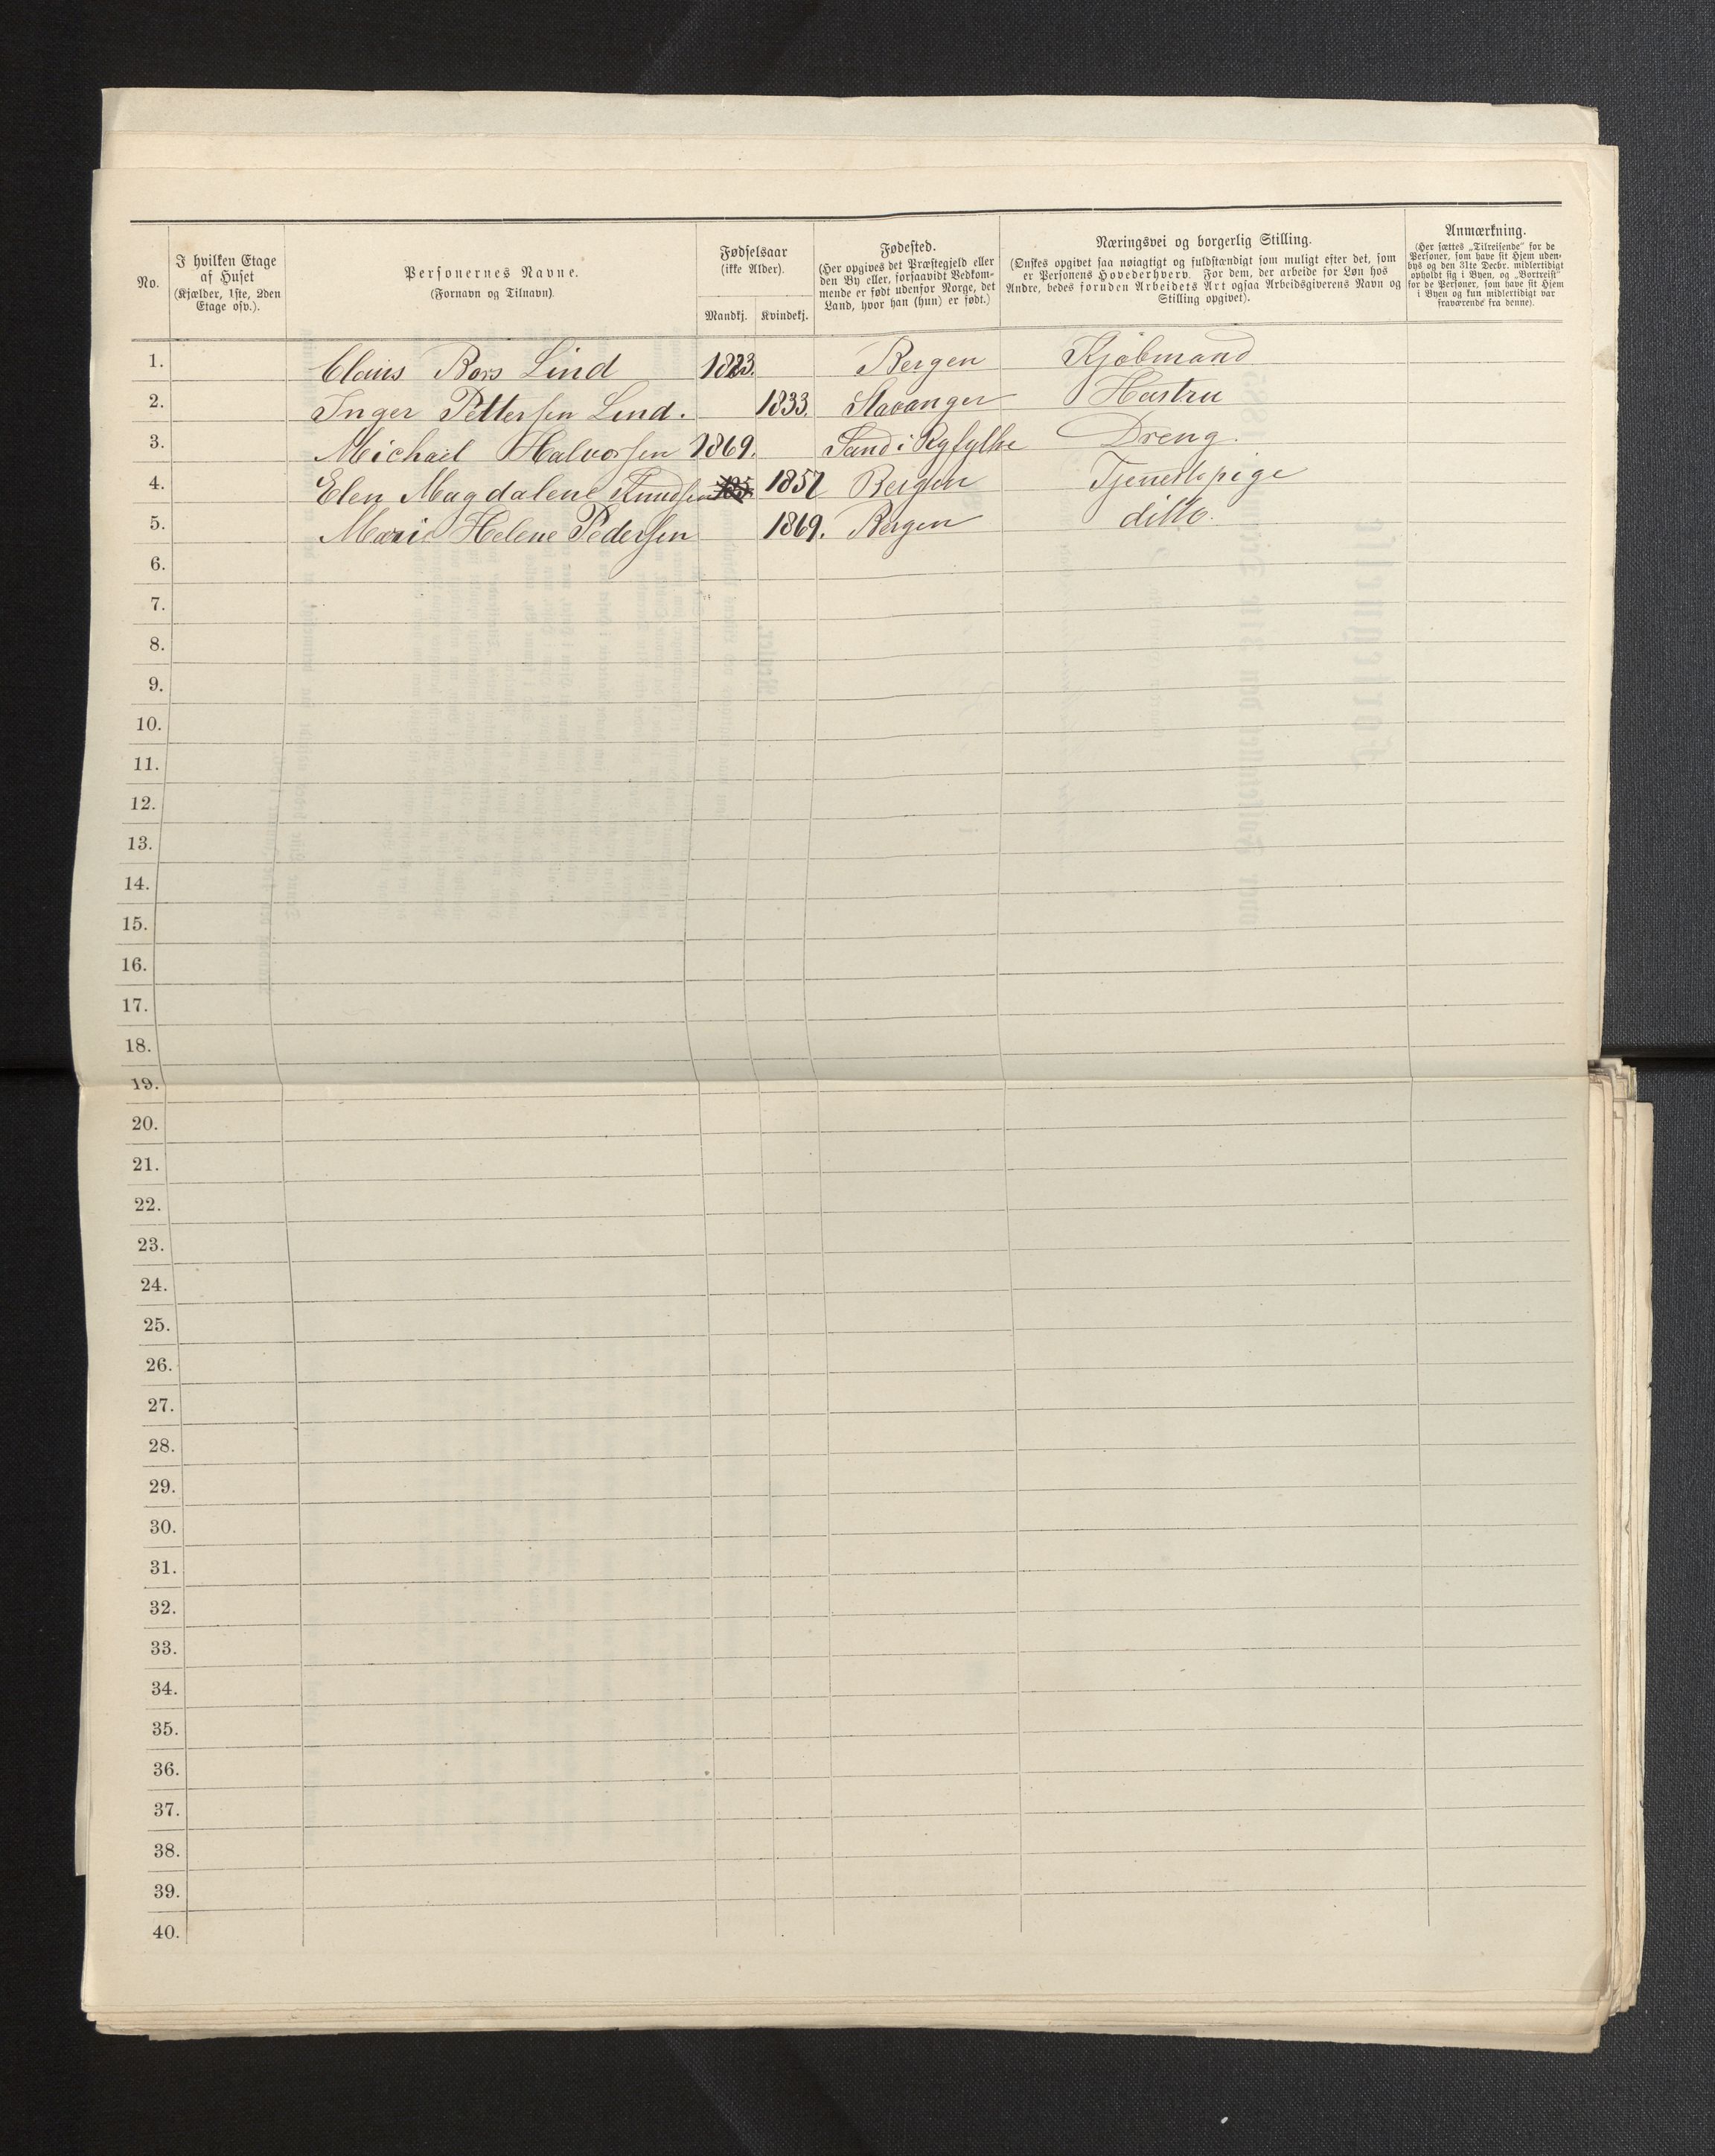 No.
I hvilken Etage
af Huset
(Kjælder, 1ste, 2den
Etage osv.).
Personernes Navne.
(Fornavn og Tilnavn).
Fødselsaar
(ikke Alder).
Mandkj. Kvindekj.
Fødested.
(Her opgives det Præstegjeld eller
den By eller, forsaavidt Vedkom-
mende er født udenfor Norge, det
Land, hvor han (hun) er født.)
Næringsvei og borgerlig Stilling.
(Ønskes opgivet saa nøiagtigt og fuldstændigt som muligt efter det, som
er Personens Hovederhverv. For dem, der arbeide for Løn hos
Andre, bedes foruden Arbeidets Art ogsaa Arbeidsgiverens Navn og
Stilling opgivet).
Anmærkning.
(Her sættes „Tilreisende“ for de
Personer, som have sit Hjem uden-
bys og den 31te Decbr. midlertidigt
opholdt sig i Byen, og „Bortreist“
for de Personer, som have sit Hjem
i Byen og kun midlertidigt var
fraværende fra denne).
1. Claus Bors Lind 1823. Bergen Kjøbmand
2. Inger Pettersen Lind. 1833. Stavanger Hustru
3. Michael Halvorsen 1869. Sand i Ryfylke Dreng.
4. Elen Magdalene Knudsen 1857 Bergen Tjenestepige
5. Marie Helene Pedersen 1869. Bergen ditto.
6.
7.
8.
9.
10.
11.
12.
13.
14.
15.
16.
17.
18.
19.
20.
21.
22.
23.
24.
25.
26.
27.
28.
29.
30.
31.
32.
33.
34.
35.
36.
37.
38.
39.
40.